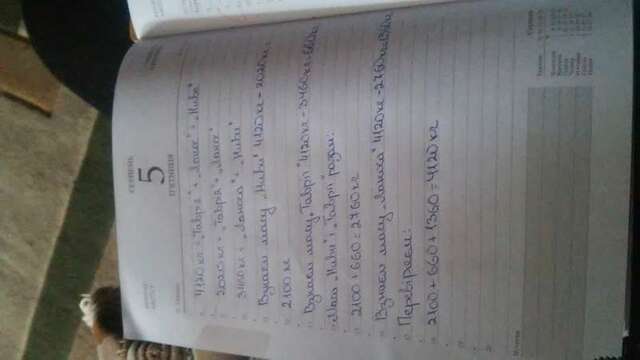 СЕРПЕНЬ
5
П'ЯТНИЦЯ
4120 кг = „Таврія" + „Ланос" + „Нива"
2020 кг = „Таврія" + „Ланос"
3460 кг = „Ланоса" + „Ниви"
Взнаєм масу „Ниви" 4120кг - 2020кг =
2100 кг
Взнаєм масу „Таврії" 4120кг - 3460кг = 660кг
Маса „Ниви" і „Таврії" разом:
2100 + 660 = 2760 кг
Взнаєм масу „Ланоса" 4120кг - 2760кг = 1360кг
Перевіряєм:
2100 + 660 + 1360 = 4120 кг
Серпень